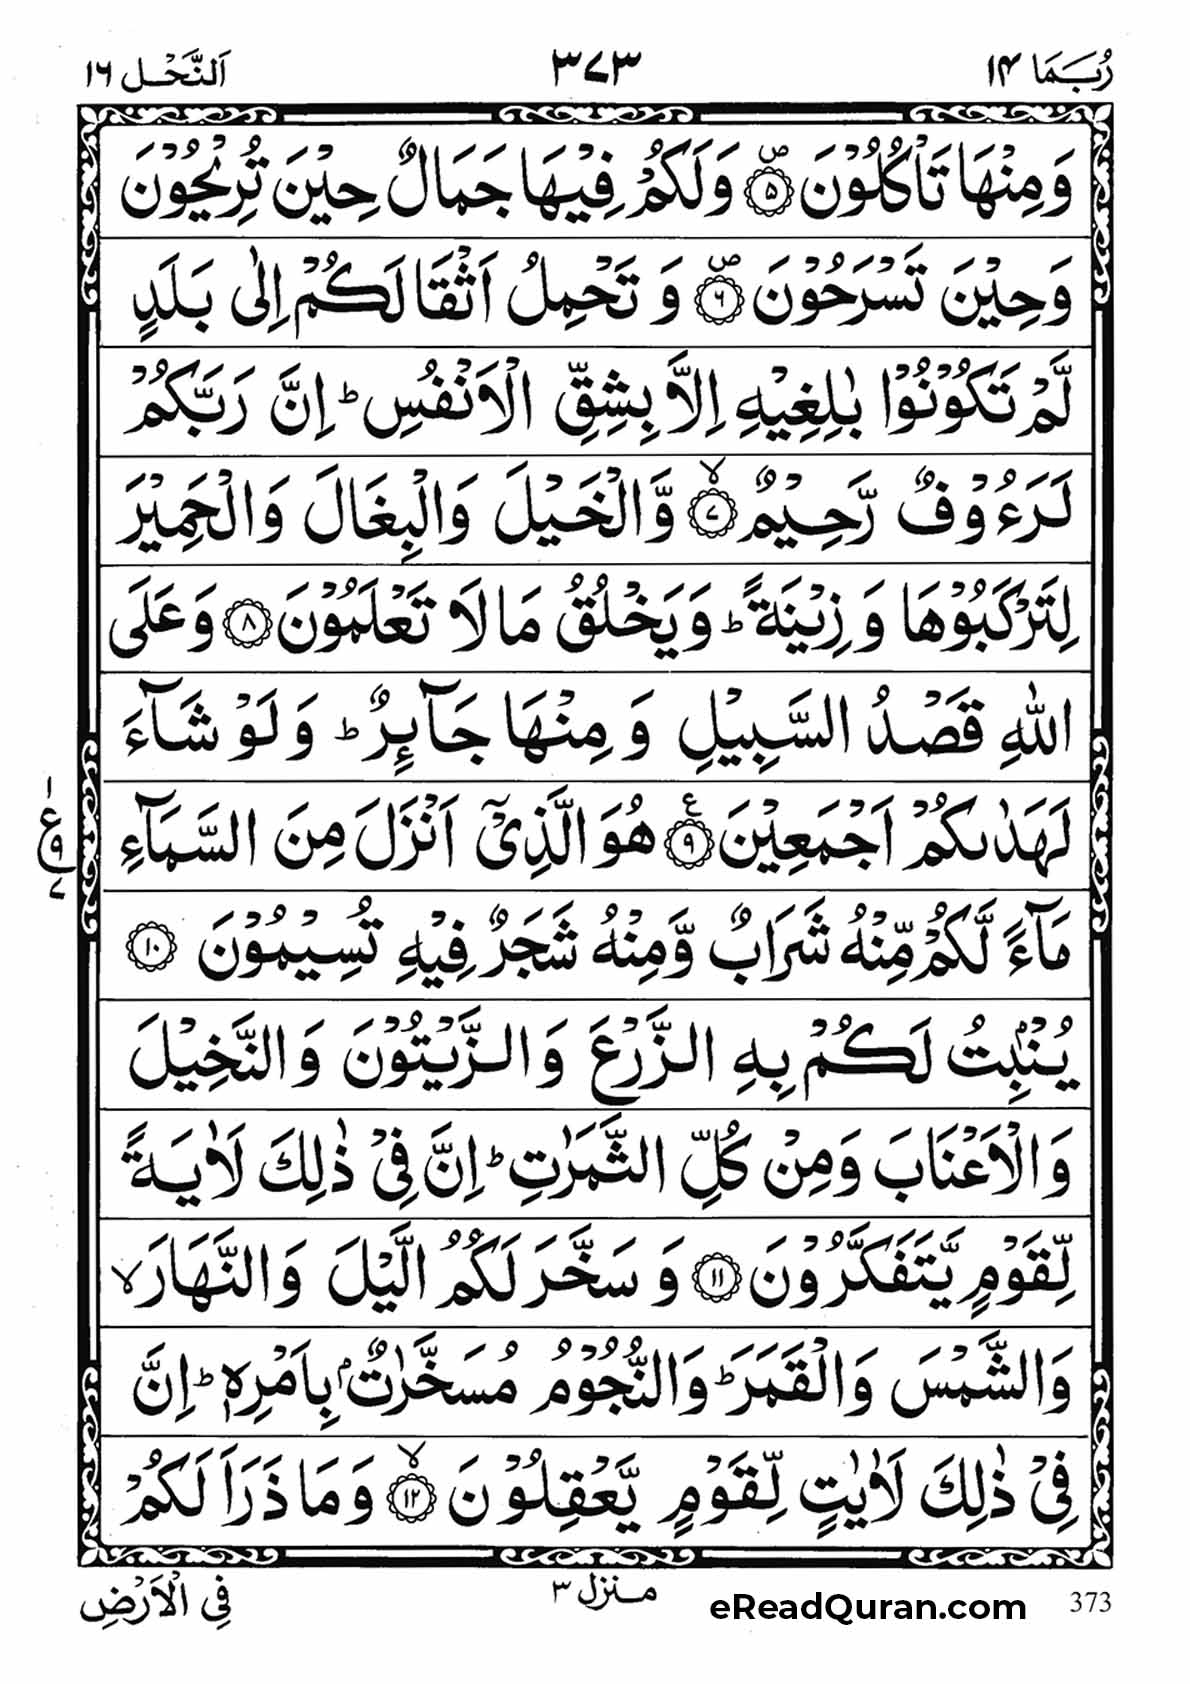 رُبَمَا ١٤
٣٧٣
اَلنَّحْل ١٦
وَمِنْهَا تَاْكُلُوْنَ ۪ ﴿۵﴾ وَلَكُمْ فِيْهَا جَمَالٌ حِيْنَ تُرِيْحُوْنَ
وَحِيْنَ تَسْرَحُوْنَ ۪ ﴿۶﴾ وَ تَحْمِلُ اَثْقَالَكُمْ اِلٰى بَلَدٍ
لَّمْ تَكُوْنُوْا بٰلِغِيْهِ اِلَّا بِشِقِّ الْاَنْفُسِ ؕ اِنَّ رَبَّكُمْ
لَرَءُوْفٌ رَّحِيْمٌ ۙ ﴿۷﴾ وَّالْخَيْلَ وَالْبِغَالَ وَالْحَمِيْرَ
لِتَرْكَبُوْهَا وَ زِيْنَةً ؕ وَيَخْلُقُ مَا لَا تَعْلَمُوْنَ ﴿۸﴾ وَعَلَى
اللّٰهِ قَصْدُ السَّبِيْلِ وَ مِنْهَا جَآئِرٌ ؕ وَ لَوْ شَآءَ
لَهَدٰىكُمْ اَجْمَعِيْنَ ﴿۹﴾ ع هُوَ الَّذِيْۤ اَنْزَلَ مِنَ السَّمَآءِ
١ ع ٩ ٧
مَآءً لَّكُمْ مِّنْهُ شَرَابٌ وَّمِنْهُ شَجَرٌ فِيْهِ تُسِيْمُوْنَ ﴿۱۰﴾
يُنْۢبِتُ لَكُمْ بِهِ الزَّرْعَ وَالزَّيْتُوْنَ وَالنَّخِيْلَ
وَالْاَعْنَابَ وَمِنْ كُلِّ الثَّمَرٰتِ ؕ اِنَّ فِيْ ذٰلِكَ لَاٰيَةً
لِّقَوْمٍ يَّتَفَكَّرُوْنَ ﴿۱۱﴾ وَ سَخَّرَ لَكُمُ الَّيْلَ وَالنَّهَارَ ۙ
وَالشَّمْسَ وَالْقَمَرَ ؕ وَالنُّجُوْمُ مُسَخَّرٰتٌۢ بِاَمْرِهٖ ؕ اِنَّ
فِيْ ذٰلِكَ لَاٰيٰتٍ لِّقَوْمٍ يَّعْقِلُوْنَ ۙ ﴿۱۲﴾ وَمَا ذَرَاَ لَكُمْ
فِي الْاَرْضِ
منزل ٣
eReadQuran.com
373